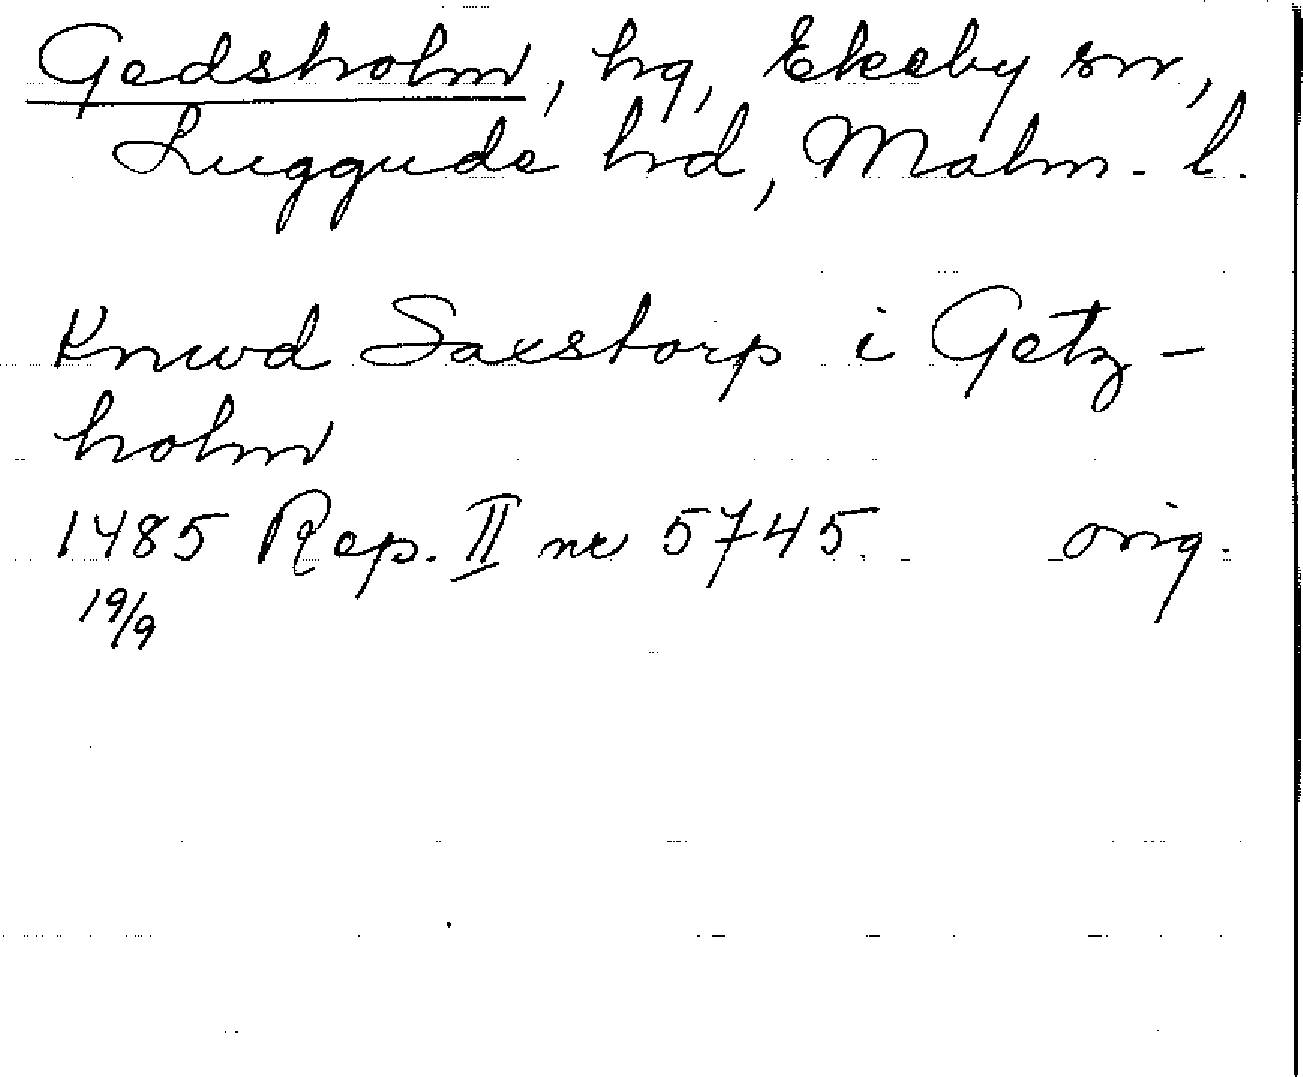 Gedsholm, hg, Ekeby sn,
Luggude hd, Malm. l.
Knwd Saxstorp i Getz-
holm
1485 Rep. II nr 5745. orig.
19/9